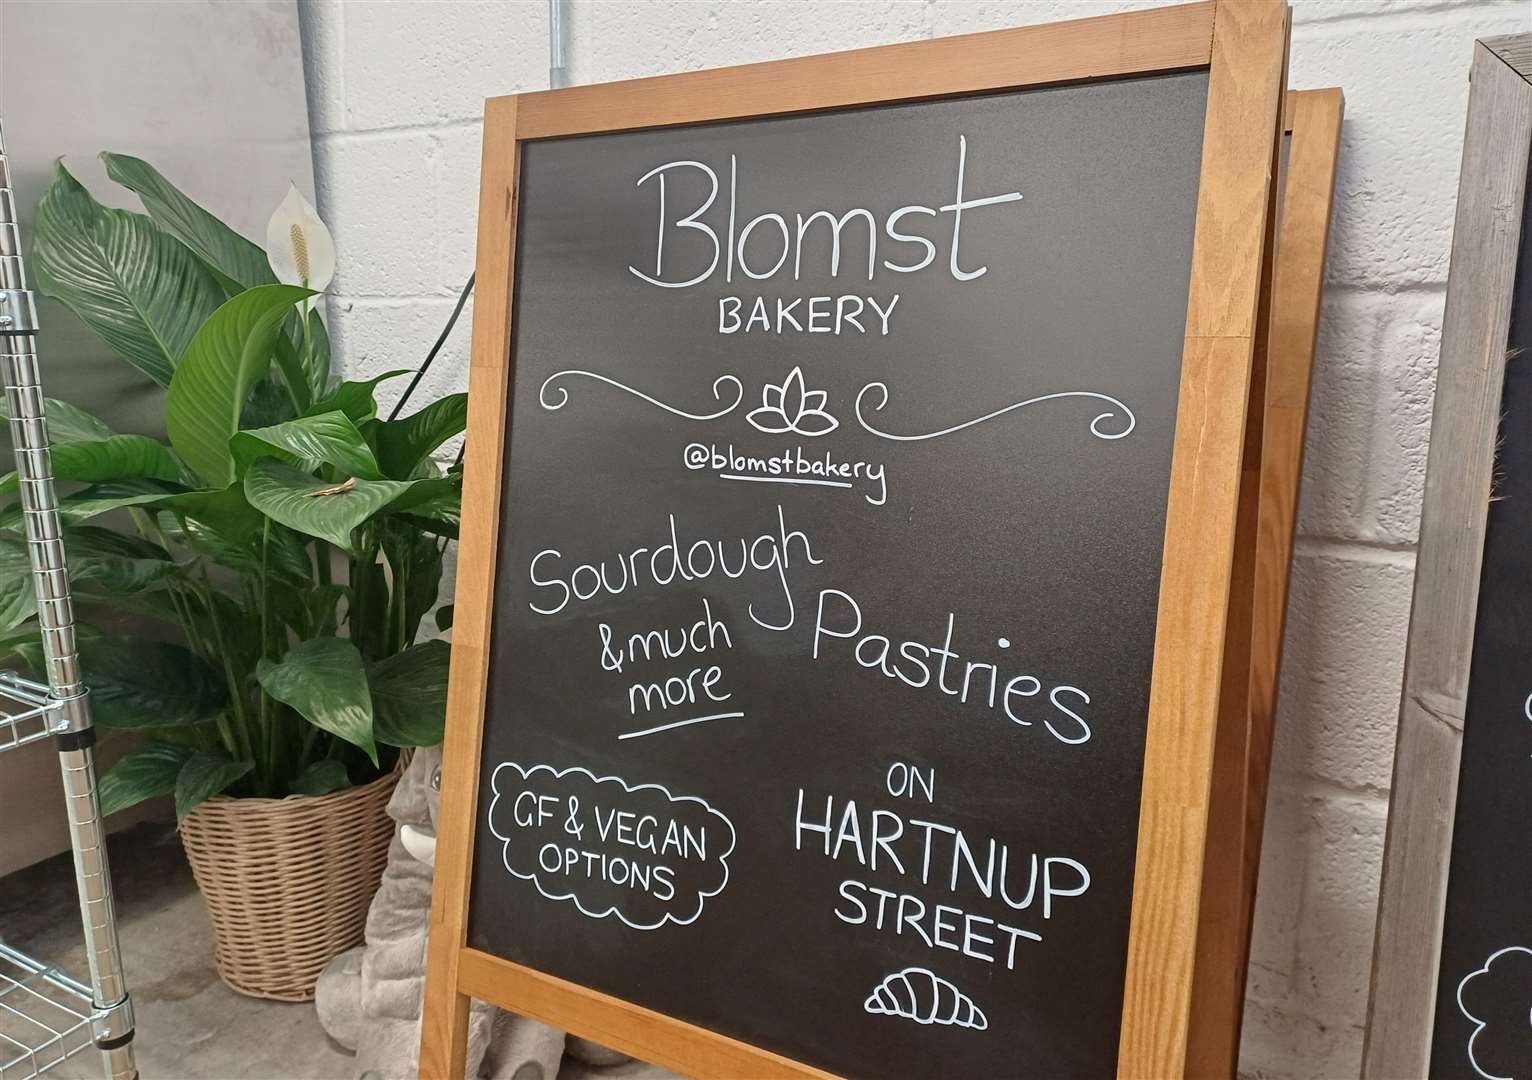 Blomst
BAKERY
@blomstbakery
Sourdough
& much
more
Pastries
GF & VEGAN
OPTIONS
ON
HARTNUP
STREET